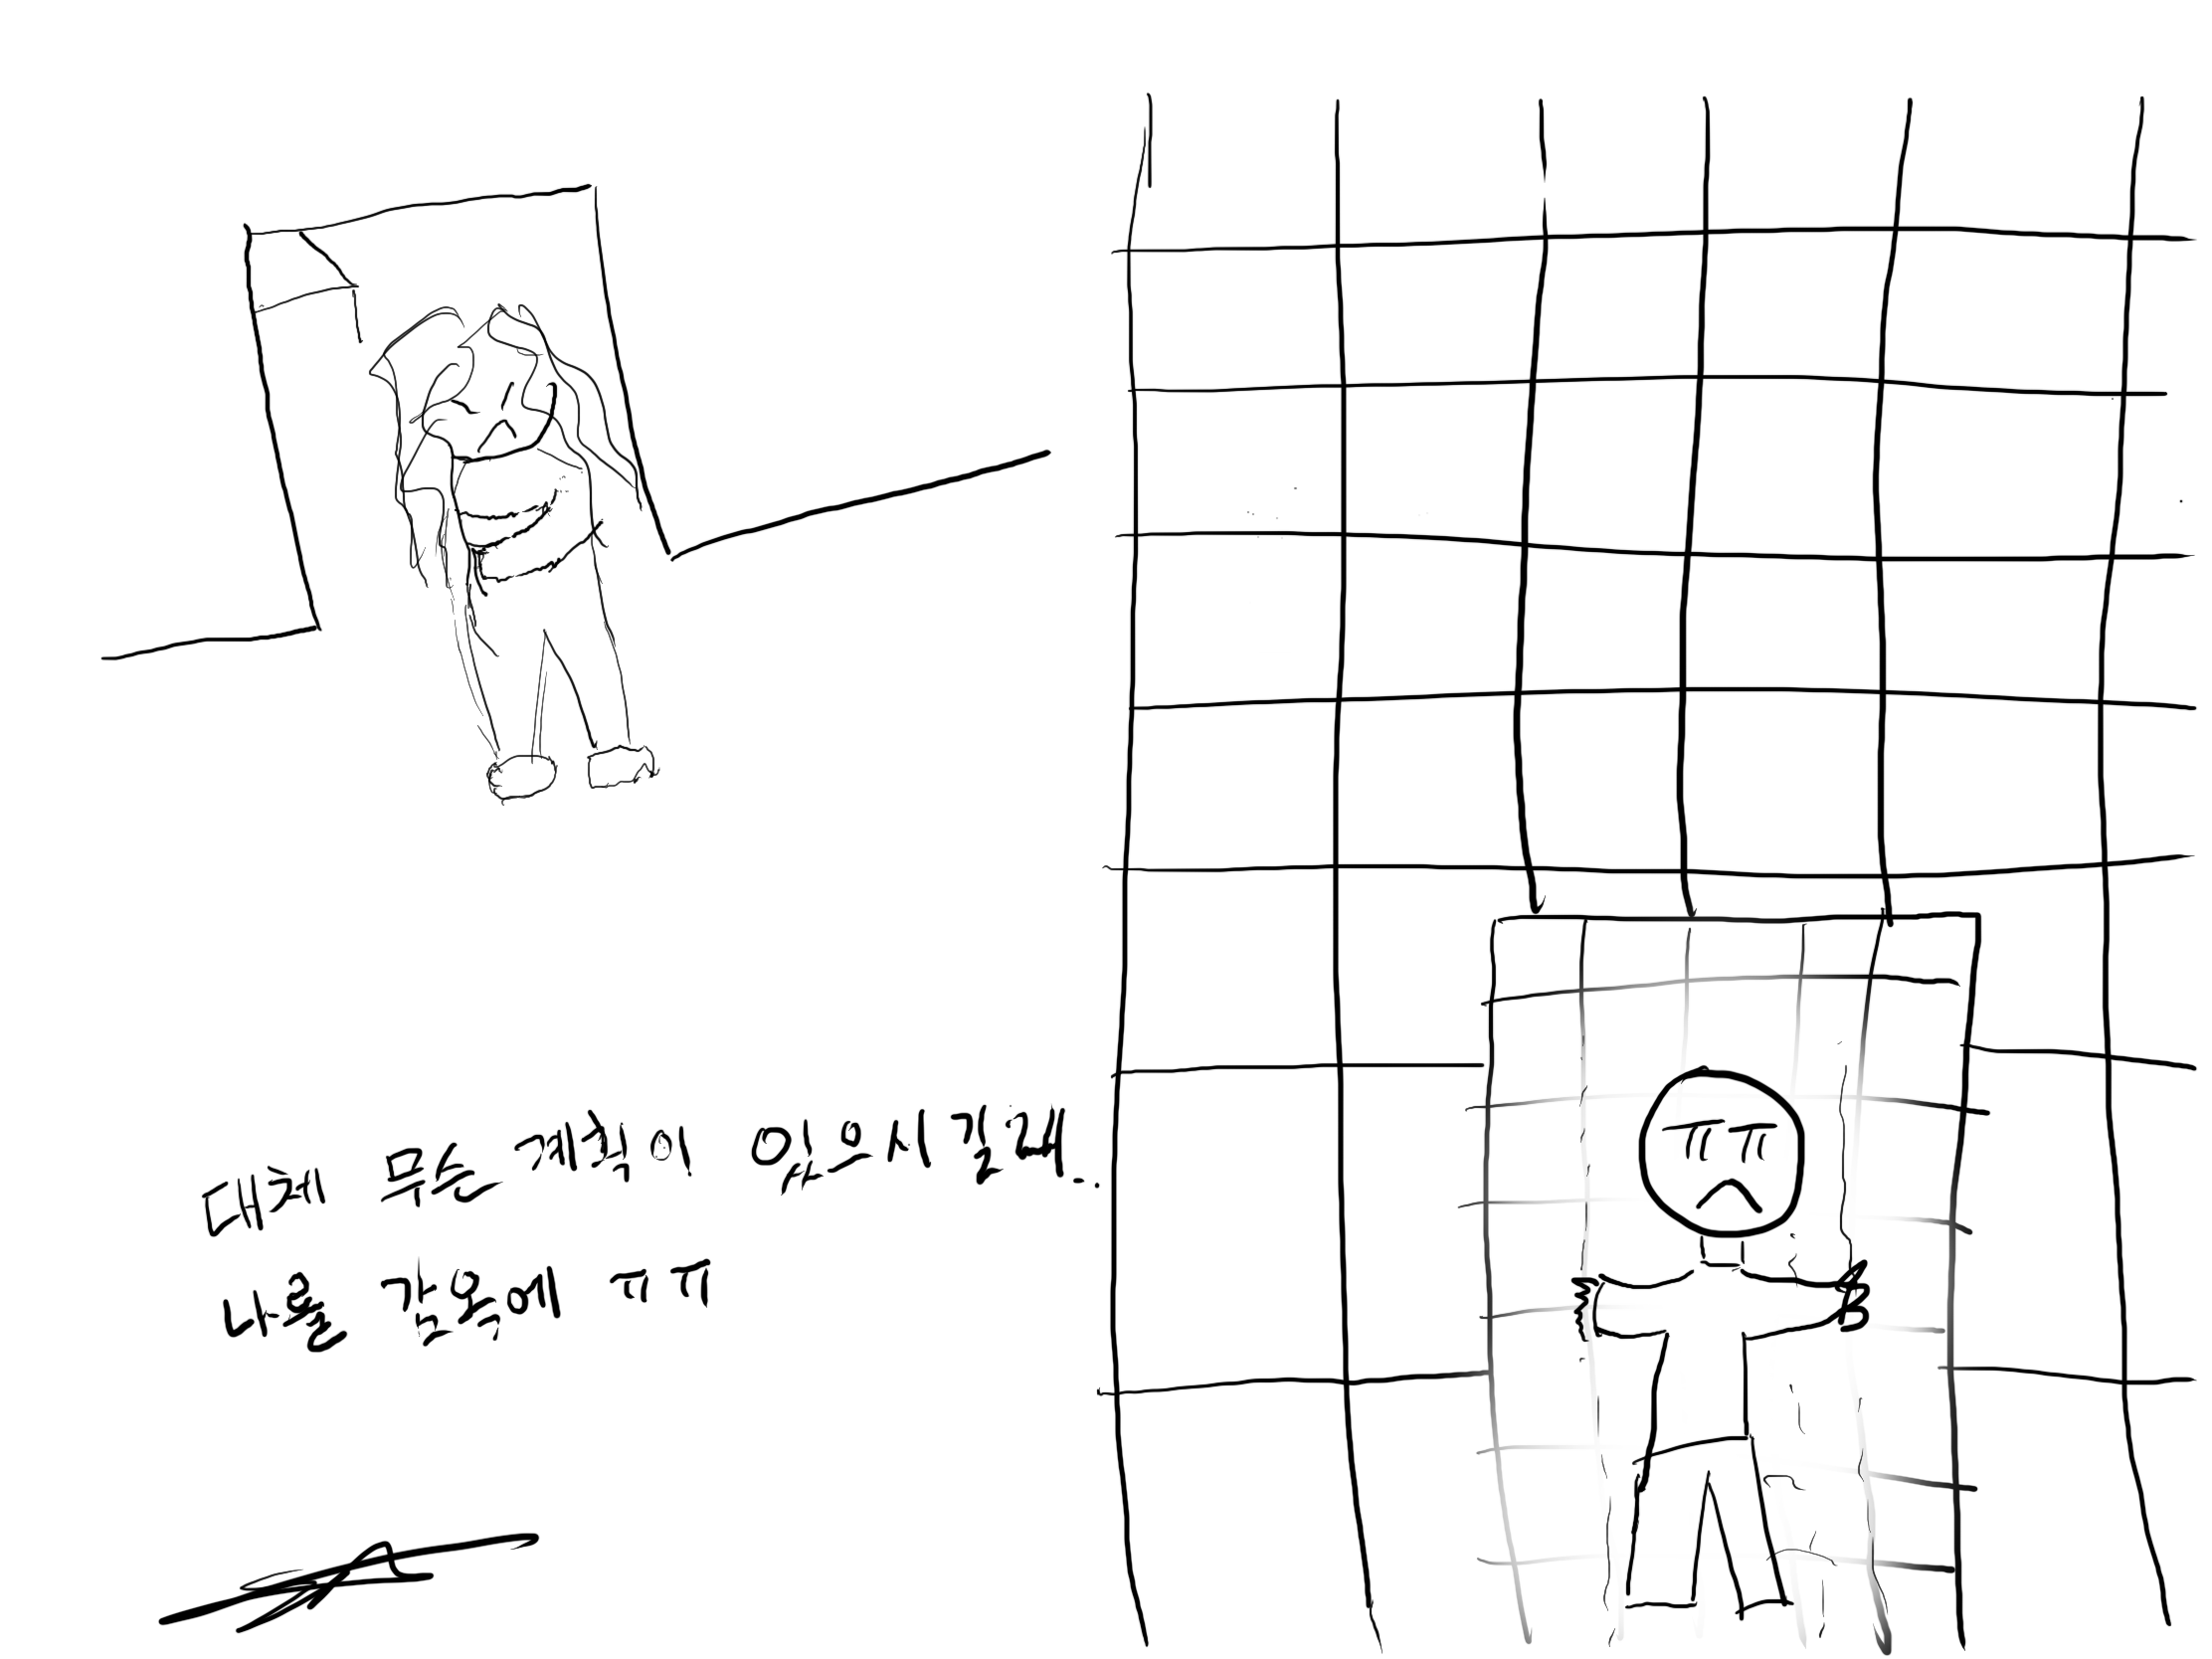 대체 무슨 계획이 있으시길래..
나를 감옥에 ㅠㅠ
ㅠㅠ